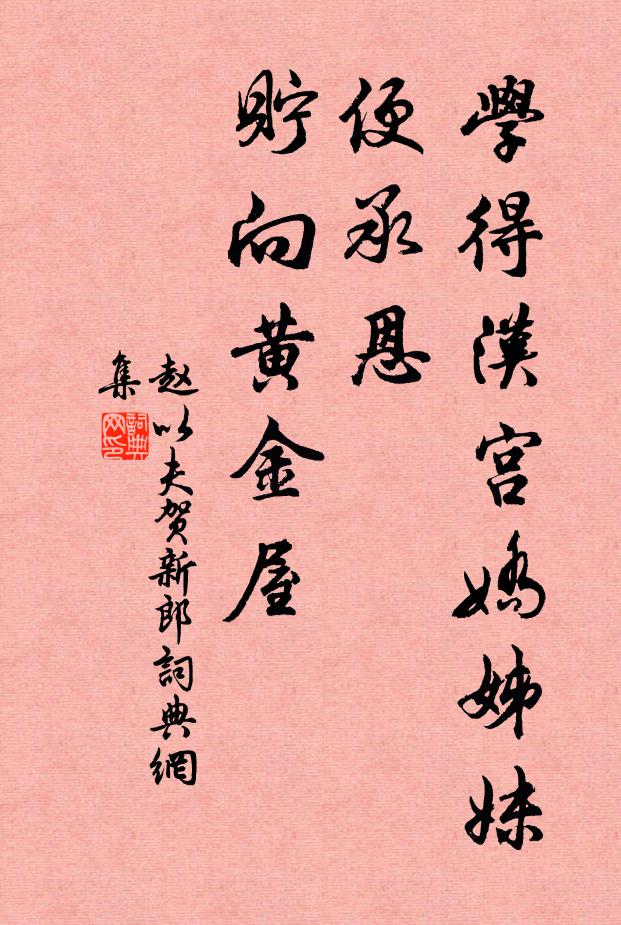 學得漢宮嬌姊妹
便承恩
貯向黃金屋
赵以夫贺新郎詞典網
集
詞典
网印